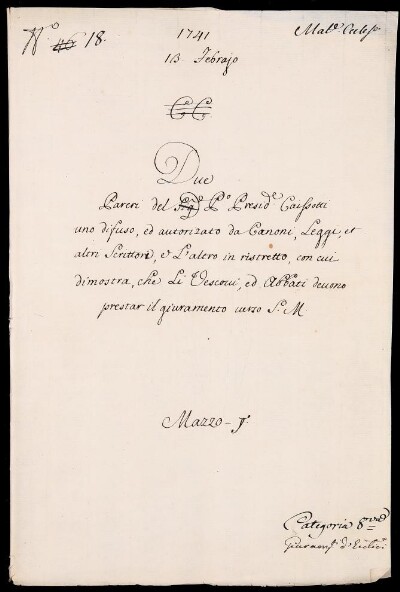 N.º 46 18.
1741
Mat.e Eccles.e
13 Febrajo
CC
Due
Pareri del Sig.r P.º Presid.e Caissotti
uno difuso, ed autorizato da Canoni, Leggi, et
altri Scrittori, e L'altro in ristretto, con cui
dimostra, che Li Vescovi, ed Abbati devono
prestar il giuramento verso S. M
Mazzo
Categoria 8
Giuram.ti d'Eccl.ci